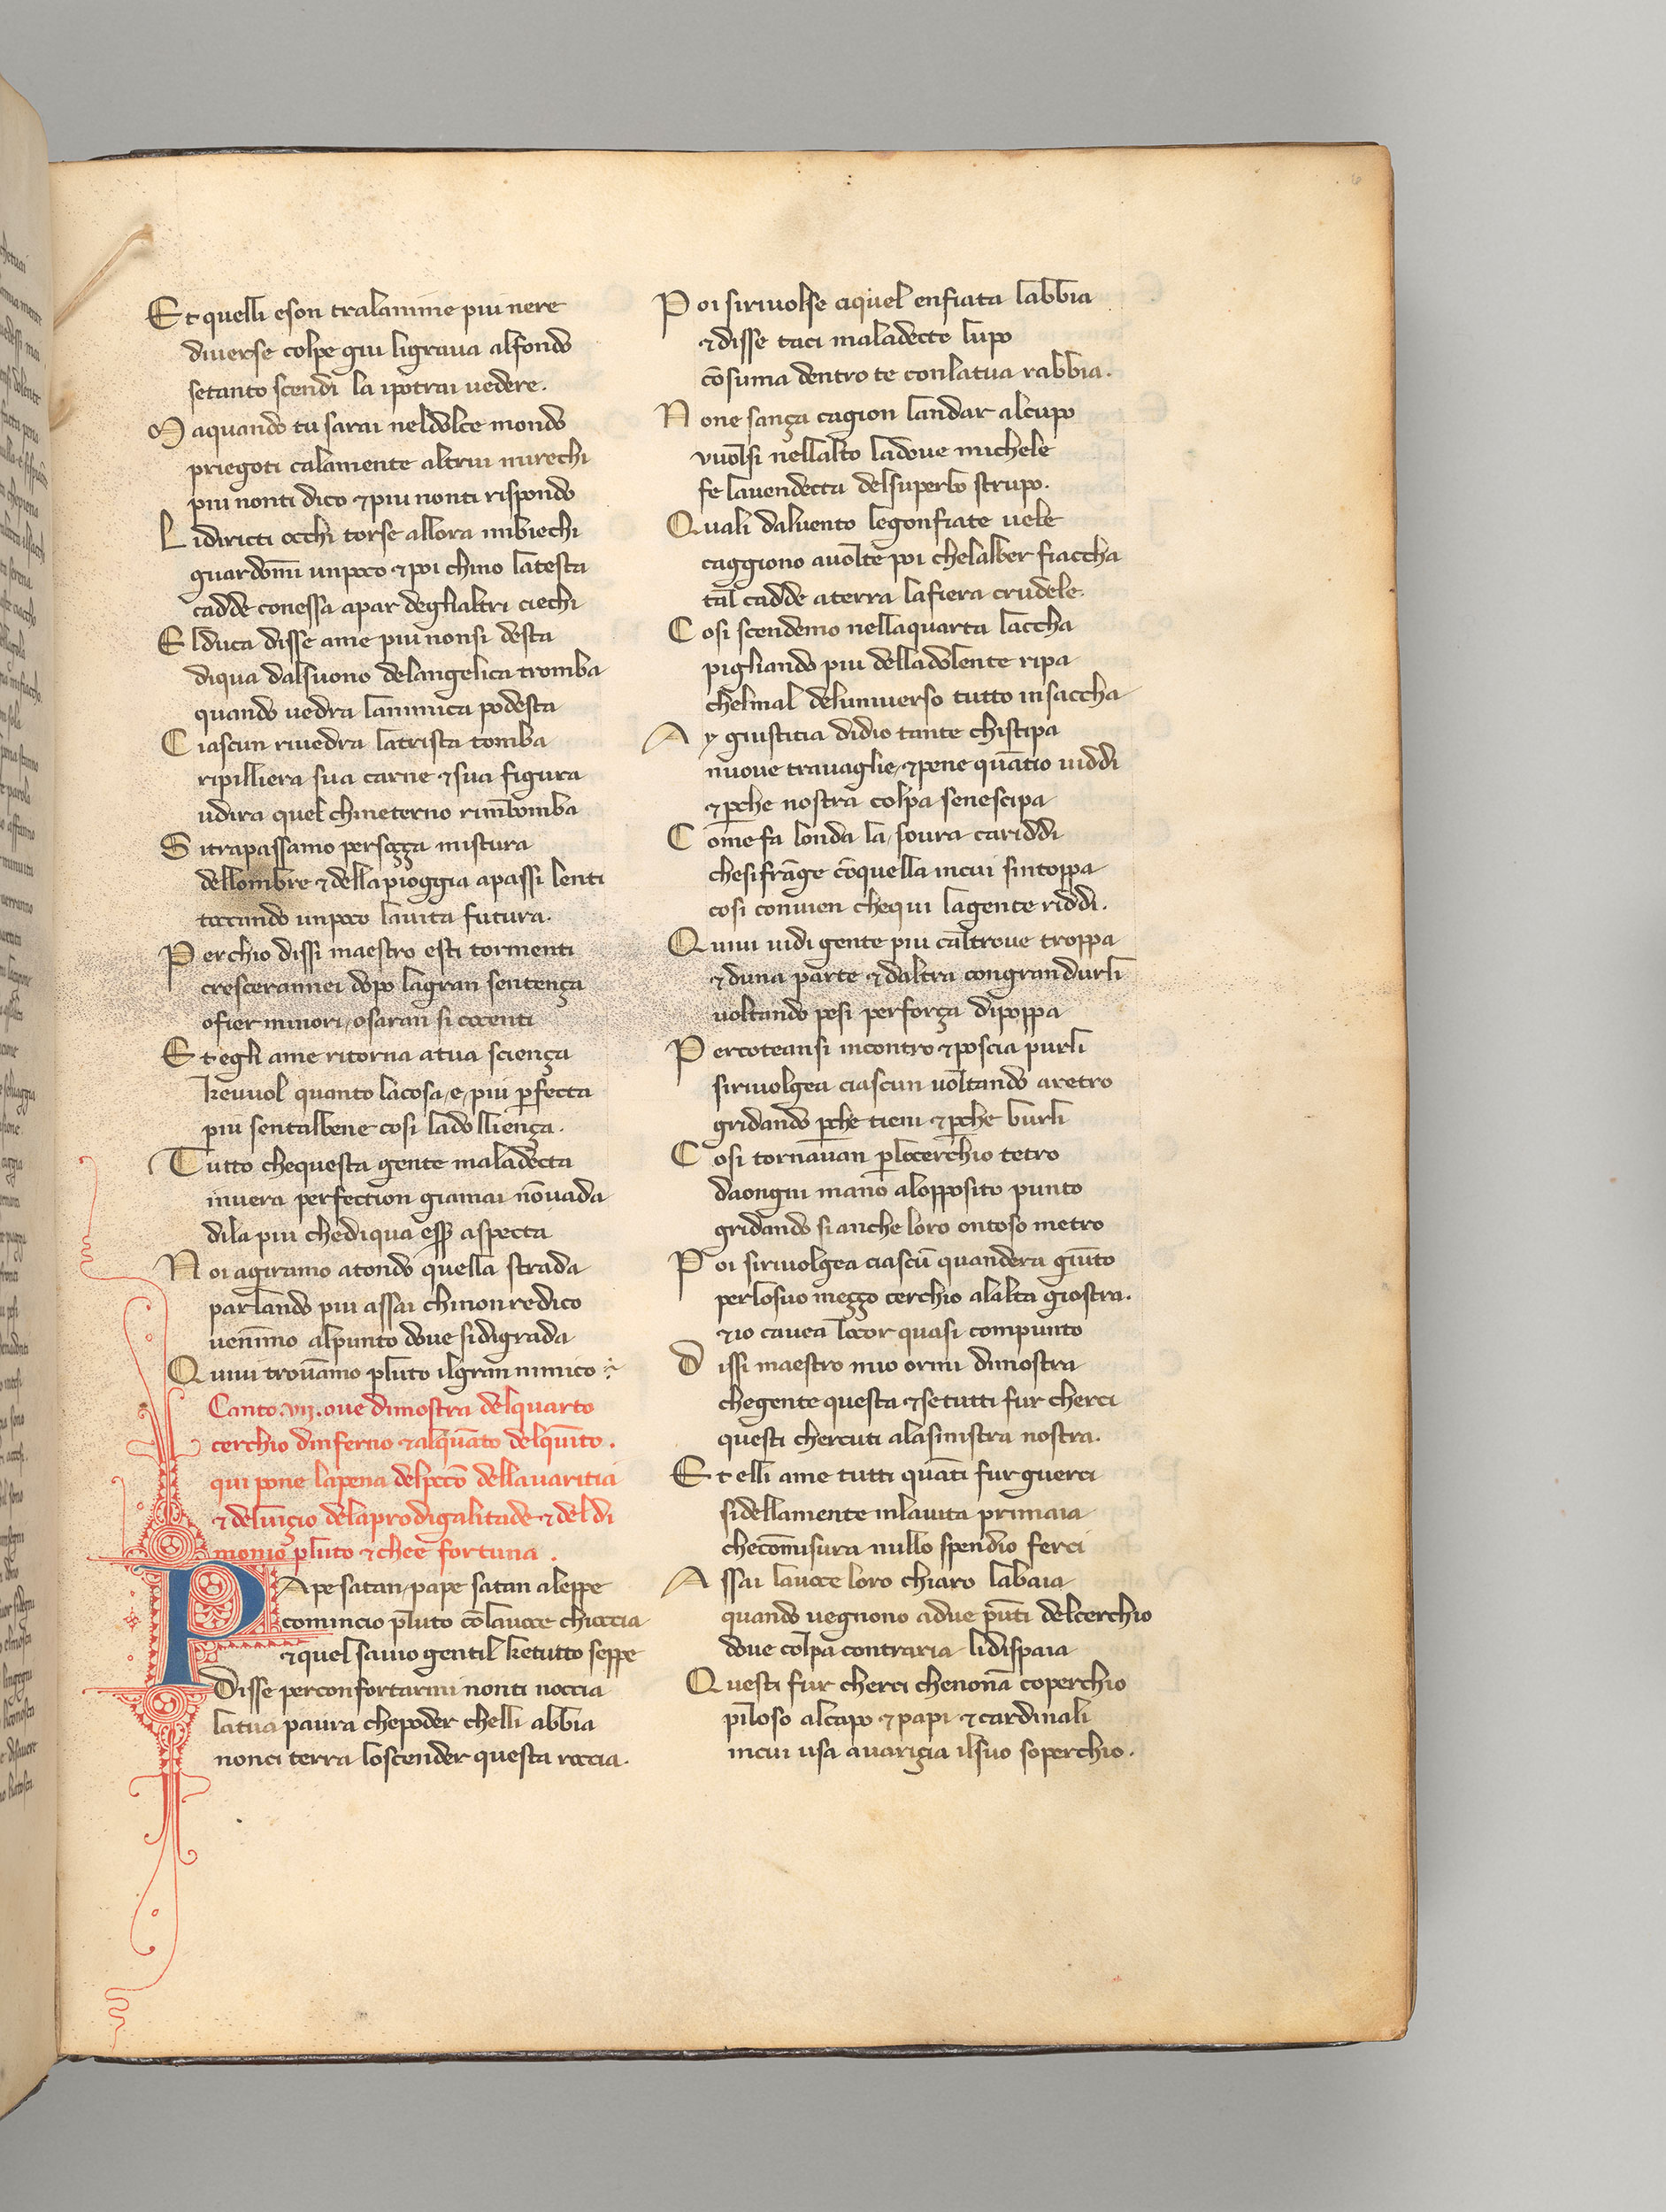 Et quelli eson tralanime piu nere
diuerse colpe giu ligraua alfondo
setanto scendi la ipotrai uedere.
Maquando tu sarai neldolce mondo
priegoti calamente altrui mirechi
piu nonti dico & piu nonti rispondo
Lidiricti occhi torse allora inbiechi
guardomi unpoco & poi chino latesta
cadde conessa apar deglialtri ciechi
Elduca disse ame piu nonsi desta
diqua dalsuono delangelica tromba
quando uedra lanimica podesta
Ciascun riuedra latrista tomba
ripilliera sua carne & sua figura
udira quel chineterno rimbomba
Sitrapassamo persoçça mistura
dellombre & dellapioggia apassi lenti
toccando unpoco lauita futura.
Perchio dissi maestro esti tormenti
crescerannei dopo lagran sentença
ofier minori / osaran si cocenti
Et egli ame ritorna atua sciença
keuuol quanto lacosa / e / piu p̄fecta
piu sentalbene cosi ladolliença.
Tutto chequesta gente maladecta
inuera perfection giamai nōuada
dila piu chediqua esse͞ aspecta
Noi agiramo atondo quella strada
parlando piu assai chinonredico
uenimo alpunto doue sidigrada
Quiui trouāmo pluto ilgran nimico
Canto .vii. oue dimostra delquarto
cerchio dinferno & alquāto delquīto.
qui pone lapena delpcc̄o dellauaritia
& deluiçio delaprodigalitade & deldi
monio pluto & chee fortuna.
PApe satan / pape satan aleppe
comincio pluto cōlauoce chioccia
& quel sauio gentil ketutto seppe
Disse perconfortarmi nonti noccia
latua paura chepoder chelli abbia
nonci terra loscender questa roccia.
Poi siriuolse aquel enfiata labbia
& disse taci maladecte lupo
cōsuma dentro te conlatua rabbia.
None sança cagion landar alcupo
vuolsi nellalto ladoue michele
fe lauendecta delsuperbo strupo.
Quali daluento legonfiate uele
caggiono auolte poi chelalber fiaccha
tal cadde aterra lafiera crudele.
Cosi scendemo nellaquarta laccha
pigliando piu delladolente ripa
chelmal deluniuerso tutto insaccha
Ay giustitia didio tante chistipa
nuoue trauaglie / & pene quātio uiddi
& p̄che nostra colpa senescipa
Come fa londa la / soura cariddi
chesifrāge cōquella incui sintoppa
cosi conuien chequi lagente riddi.
Quiui uidi gente piu caltroue troppa
& duna parte & daltra congrandurli
uoltando pesi perforça dipoppa
Percoteansi incontro & poscia purli
siriuolgea ciascun uoltando aretro
gridando p̄che tieni & p̄che burli
Cosi tornauan p̄locerchio tetro
daongni mano alopposito punto
gridando si anche loro ontoso metro
Poi siriuolgea ciascū quandera giūto
perlosuo meggo cerchio alalta giostra.
& io cauea locor quasi compunto
dissi maestro mio ormi dimostra
chegente questa & setutti fur cherci
questi chercuti alasinistra nostra.
Et elli ame tutti quāti fur guerci
sidellamente inlauita primaia
checomisura nullo spendio ferci
Assai lauoce loro chiaro labaia
quando uegnono adue pūti delcerchio
doue colpa contraria lidispaia
Questi fur cherci chenonā coperchio
piloso alcapo & papi & cardinali
incui usa auariçia ilsuo soperchio.